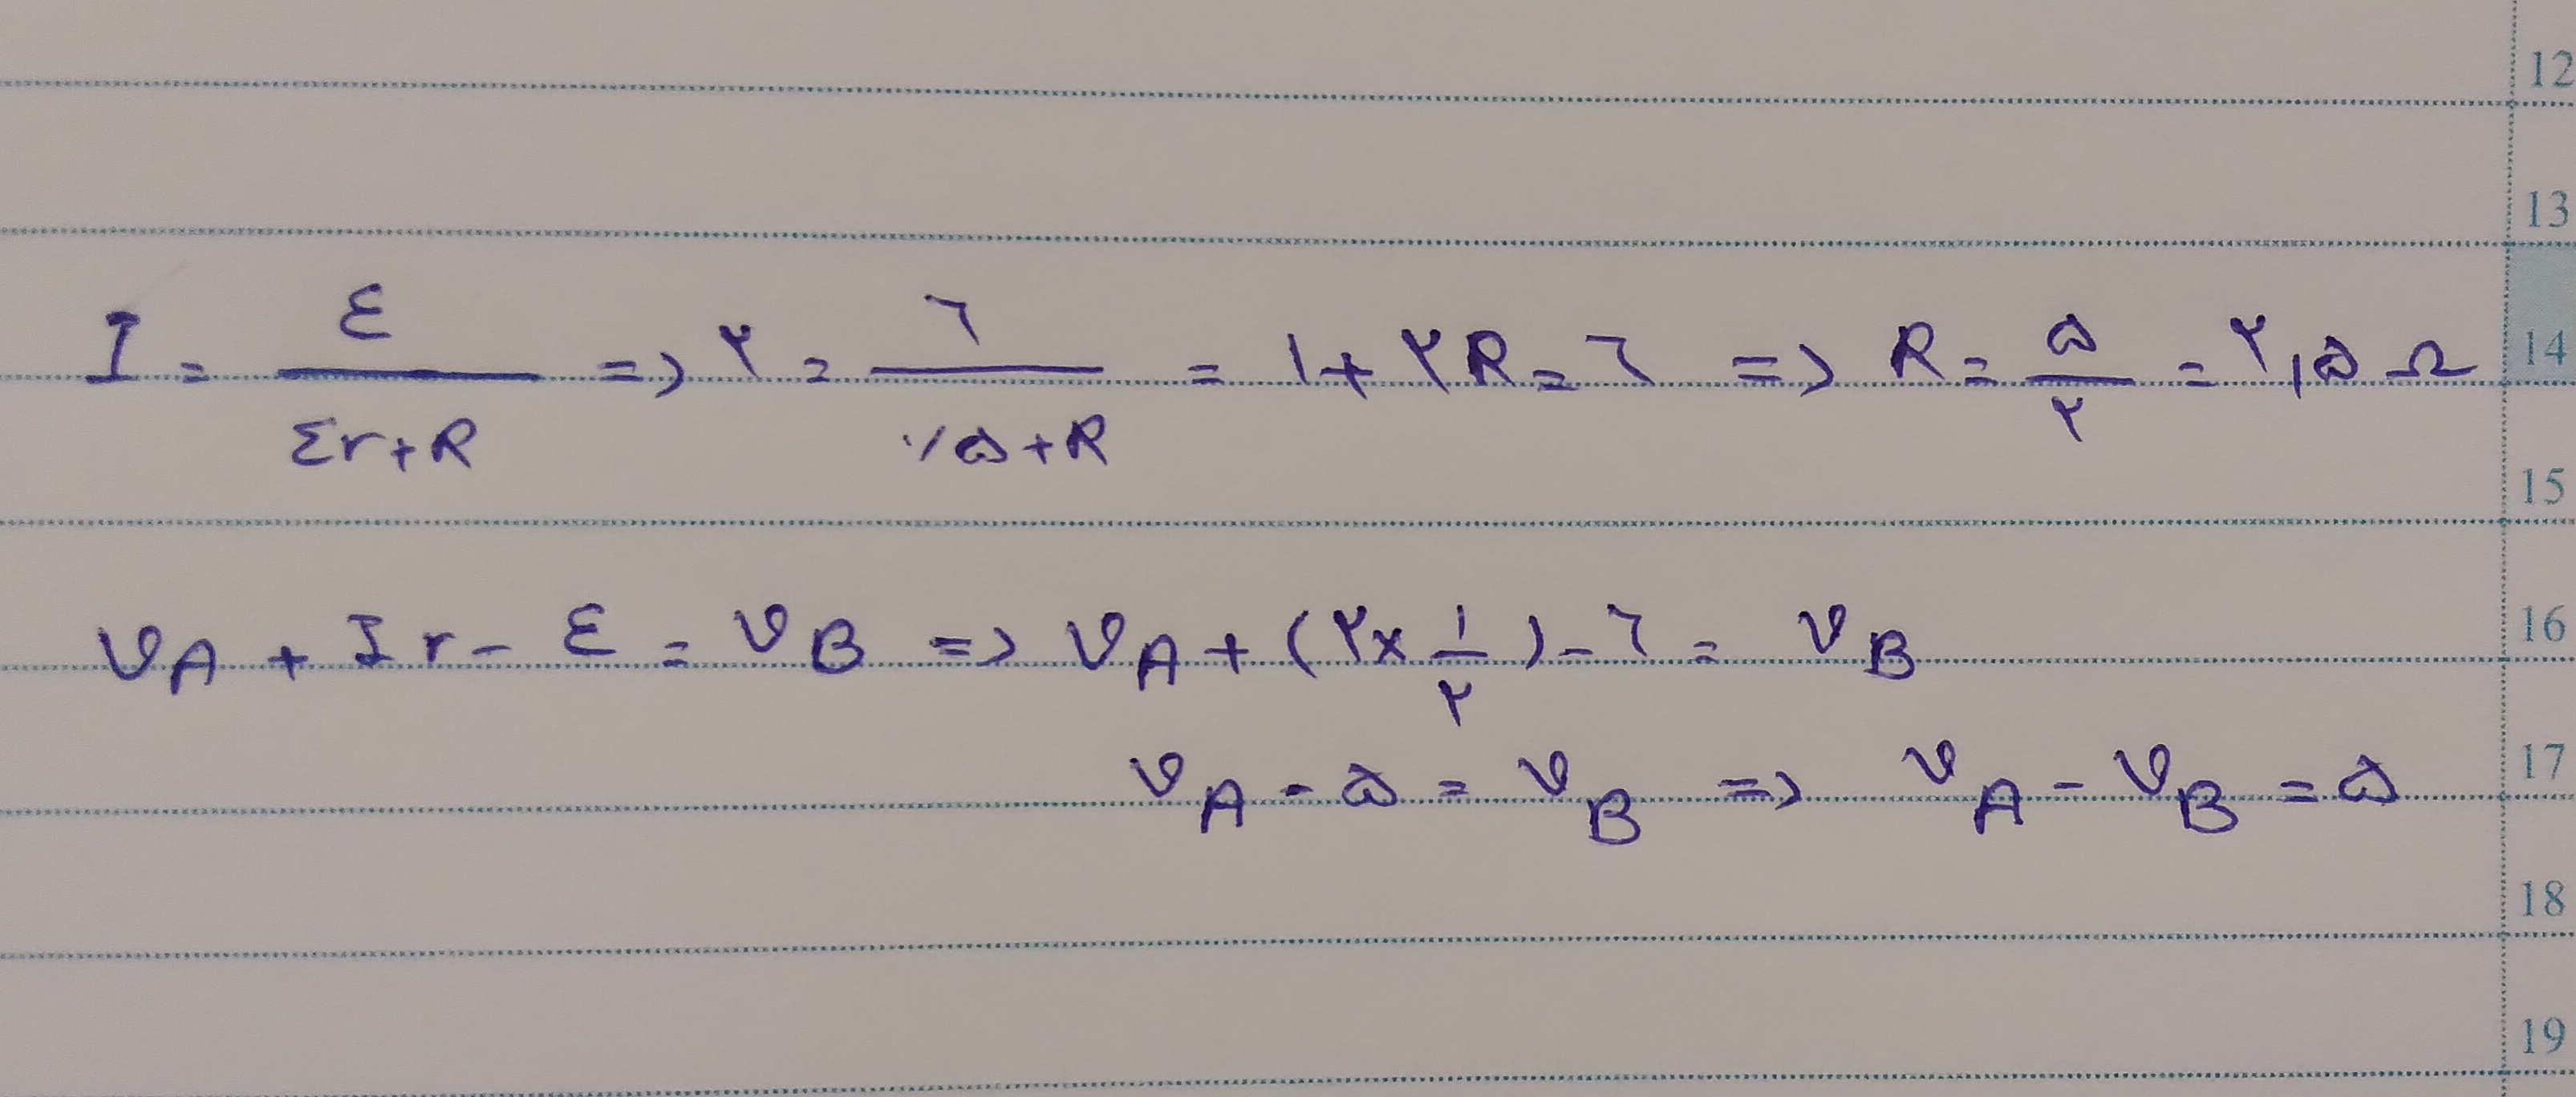 12
13
I = ε / (Σr + R) => ۲ = ٦ / (۰/۵ + R) = ۱ + ۲R = ٦ => R = ۵/۲ = ۲,۵ Ω
14
15
V_A + Ir - ε = V_B => V_A + (۲ × ۱/۲) - ٦ = V_B
16
V_A - ۵ = V_B => V_A - V_B = ۵
17
18
19